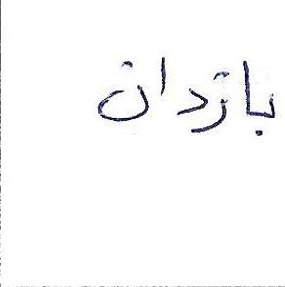 بازدان